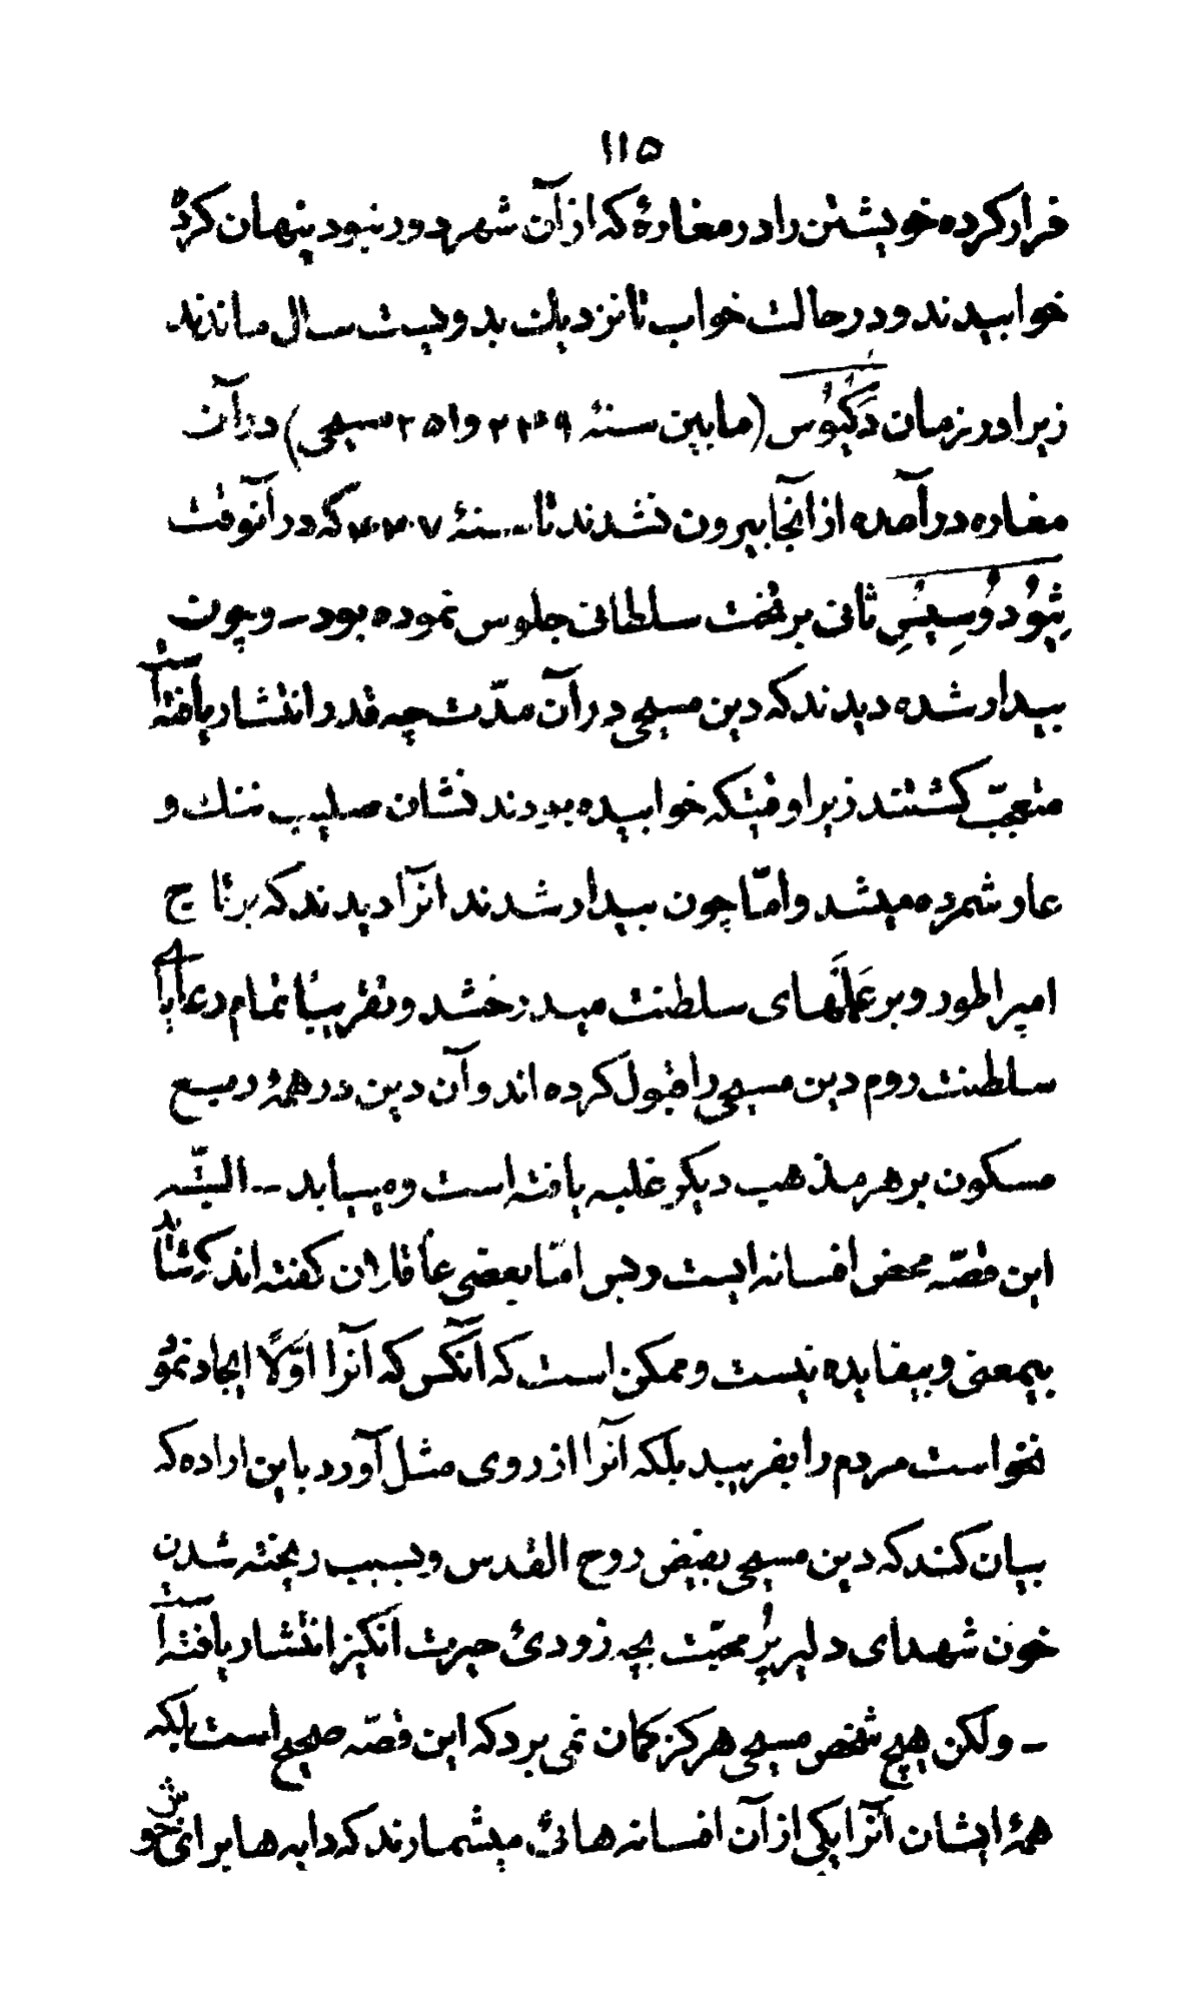 ۱۱۵
فرار کرده خویشتن را در مغارهٔ که از آن شهر دور نبود پنهان کرده
خوابیدند و در حالت خواب تا نزدیک بدویست سال ماندند
زیرا در زمان دَکِیُوس (مابین سنهٔ ۲۴۹ و ۲۵۱ مسیحی) در آن
مغاره درآمده از آنجا بیرون نشدند تا سنهٔ ۴۴۷ که در آنوقت
ثِیُودُوسِیُسِ ثانی بر تخت سلطانی جلوس نموده بود ــ و چون
بیدار شده دیدند که دین مسیحی در آن مدّت چه قدر انتشار یافته است
متعجّب کشتند زیرا وقتیکه خوابیده بودند نشان صلیب ننک و
عار شمرده میشد و امّا چون بیدار شدند آنرا دیدند که بر تاج
امپراطور و بر عَلَمهای سلطنت میدرخشد و تقریبًا تمام رعایای
سلطنت روم دین مسیحی را قبول کرده اند و آن دین در همهٔ ربع
مسکون بر هر مذهب دیکر غلبه یافته است و مییابد ــ البتّه
این قصّه محض افسانه ایست و بس امّا بعضی عاقلان کفته اند که شاید
بیمعنی و بیفایده نیست و ممکن است که آنکس که آنرا اوّلاً ایجاد نمود
نخواست مردم را بفریبد بلکه آنرا از روی مثل آورد باین اراده که
بیان کند که دین مسیحی بفیض روح القدس و بسبب ریخته شدن
خون شهدای دلیر پُر محبّت بچه زودیٔ حیرت انکیز انتشار یافته است
ــ ولکن هیچ شخص مسیحی هرکز کمان نمی برد که این قصّه صحیح است بلکه
همهٔ ایشان آنرا یکی از آن افسانه هائی میشمارند که دایه ها برای خوش